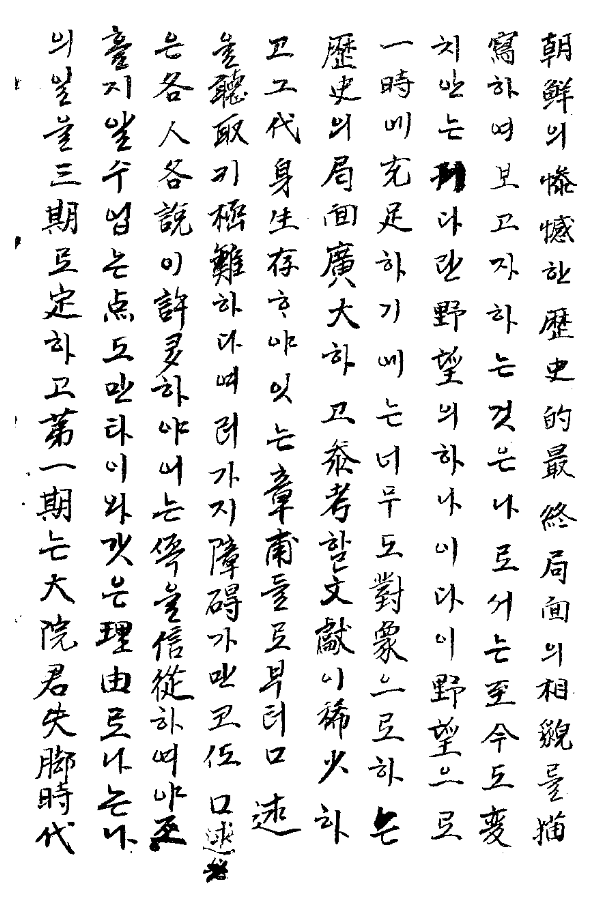 朝鮮의 慘憾한 歷史的 最終局面의 相貌를 描
寫하여 보고자 하는 것은 나로서는 至今도 変
치 안는 다란 野望의 하나이다 이 野望으로
一時에 充足하기에는 너무도 對象으로 하는
歷史의 局面 廣大하고 参考할 文獻이 稀少하
고 그 代身 生存ᄒᆞ야 잇는 章甫들로부터 口述
을 聽取키 極難하다 여러가지 障碍가 만코 仮 口述
은 各人各説이 許多하야 어는 便을 信從하여야 죠
흘지 알 수 업는 点도 만타 이와 갓은 理由로 나는 나
의 일을 三期로 定하고 第一期는 大院君 失脚時代